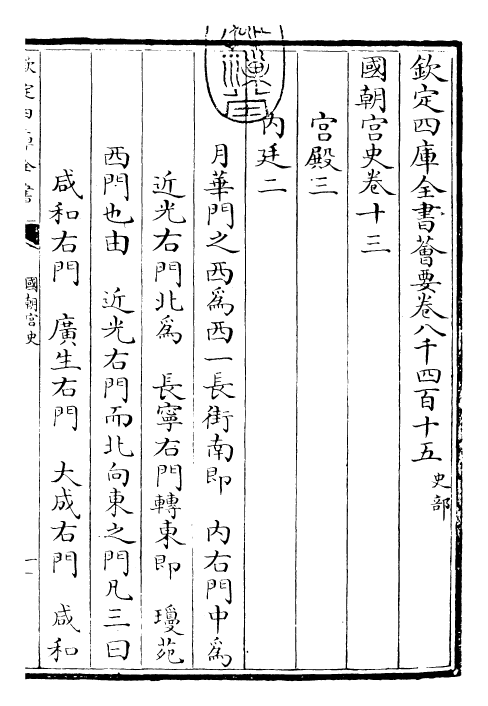 欽定四庫全書薈要卷八千四百十五 史部
國朝宮史卷十三
宮殿三
內廷二
月華門之西爲西一長街南即 內右門中爲
近光右門北爲 長寧右門轉東即 瓊苑
西門也由 近光右門而北向東之門凡三曰
咸和右門 廣生右門 大成右門 咸和
欽定四庫全書
國朝宮史
一